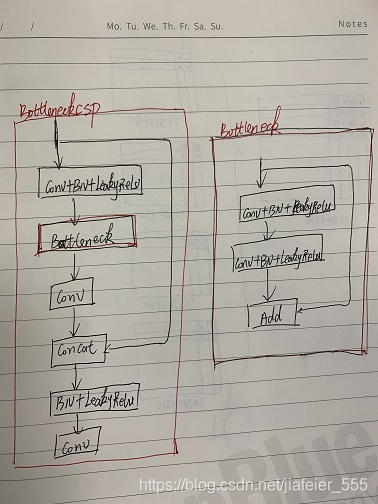 / /
Mo. Tu. We. Th. Fr. Sa. Su.
Notes
BottleneckCSP
Conv+BN+LeakyRelu
Bottleneck
Conv
Concat
BN+LeakyRelu
Conv
Bottleneck
Conv+BN+LeakyRelu
Conv+BN+LeakyRelu
Add
https://blog.csdn.net/jiafeier_555